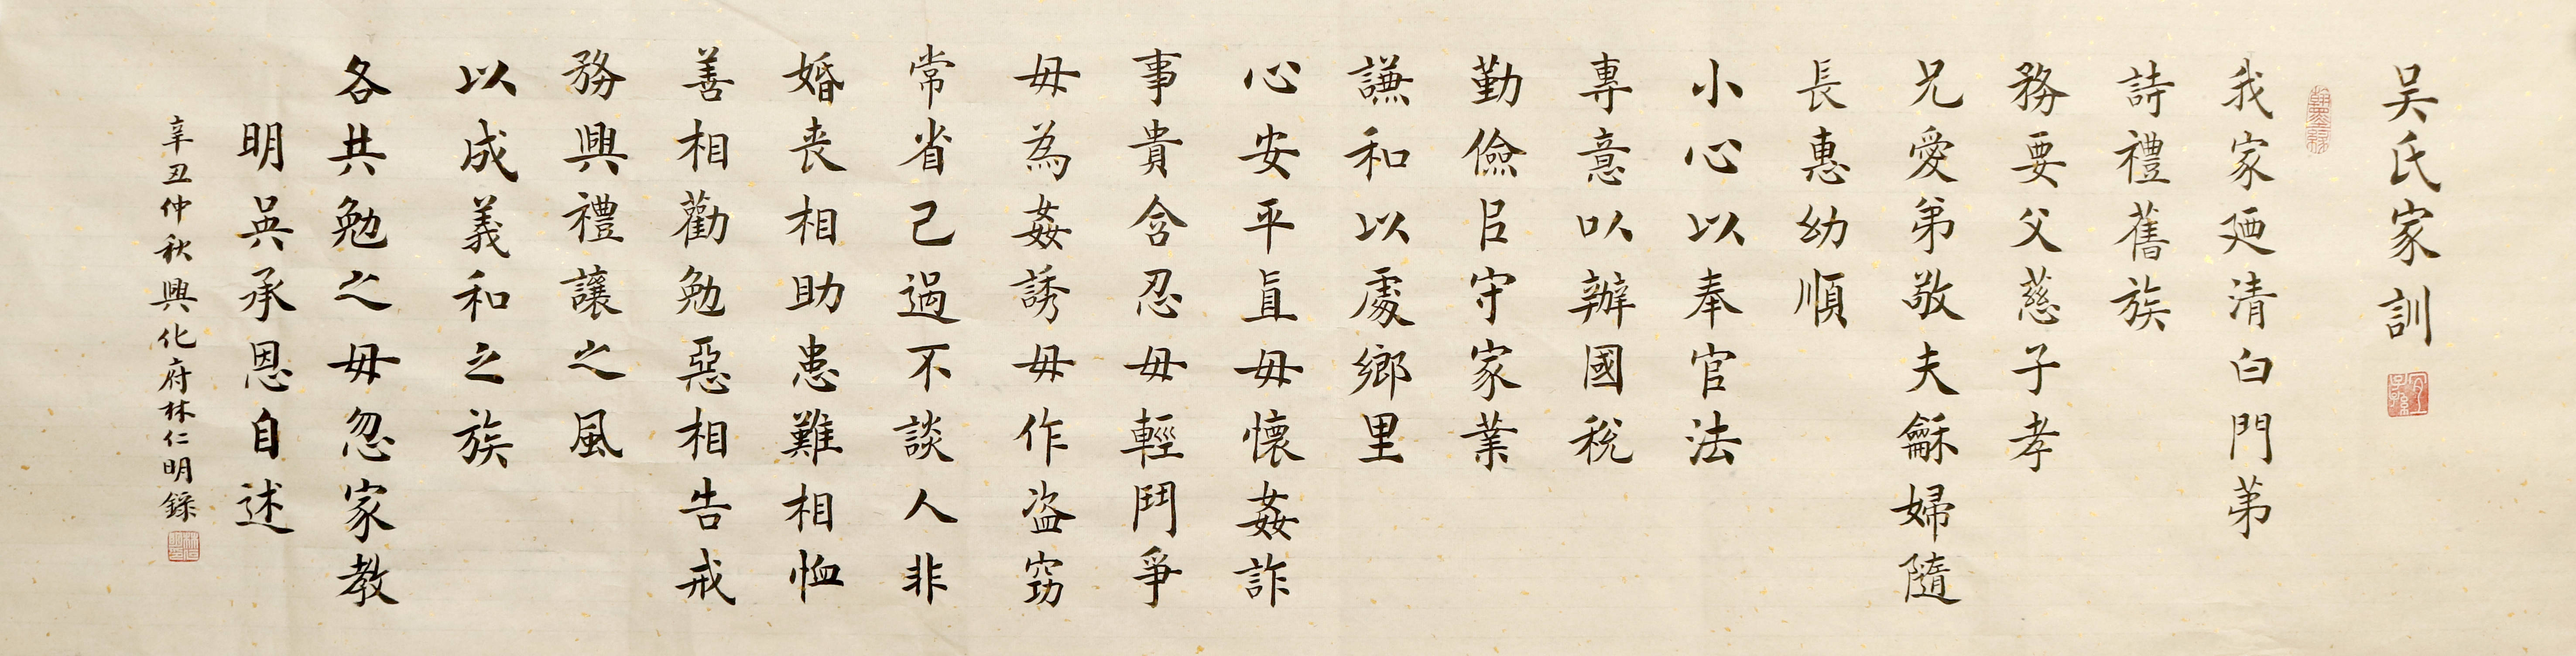 吴氏家訓
我家廼清白門第
詩禮舊族
務要父慈子孝
兄愛弟敬夫龢婦隨
長惠幼順
小心以奉官法
專意以辦國稅
勤儉㠯守家業
謙和以處鄉里
心安平直毋懷姦詐
事貴含忍毋輕鬥爭
毋為姦誘毋作盜竊
常省己過不談人非
婚丧相助患難相恤
善相勸勉惡相告戒
務興禮讓之風
以成義和之族
各共勉之毋忽家教
明吳承恩自述
辛丑仲秋興化府林仁明錄